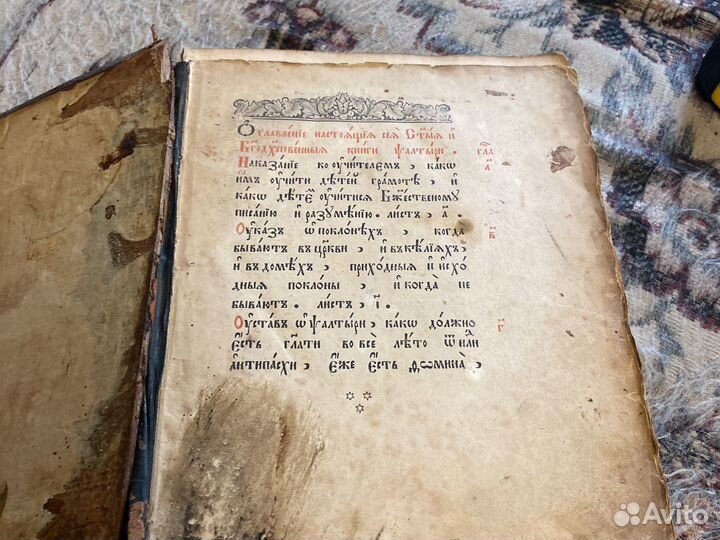 Ѻглавленїе настоѧщїѧ сеѧ̀ Ст҃ыѧ и҆
Бг҃одꙋхновенныѧ книги ѱалтыри. гла
Наказанїе ко оу҆чителемъ, какѡ а҃
и҆мъ оу҆чити дѣте́й грамотѣ, и҆
какѡ дѣте́мъ оу҆читисѧ Бж҃ественомꙋ
писанїю и҆ разꙋмѣнїю. листъ, а҃.
Оу҆казъ ѡ҆ поклонѣхъ, когда в҃
бываютъ въ цр҃кви, и҆ въ ке́лїѧхъ,
и҆ въ домѣхъ, приходныѧ и҆ и҆схо́
дныѧ поклоны, и҆ когда не
бываютъ. листъ, і҃.
Оу҆ставъ ѡ҆ ѱалтыри, какѡ должно г҃
є҆сть гл҃ати во всѐ лѣто ѿ нл҃и
а҆нтипасхи, є҆́же є҆сть дѡмина̀,
Avito